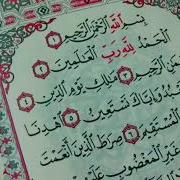 بِسْمِ ٱللَّهِ ٱلرَّحْمَٰنِ ٱلرَّحِيمِ ١
ٱلْحَمْدُ لِلَّهِ رَبِّ ٱلْعَٰلَمِينَ ٢
ٱلرَّحِيمِ ٣ مَٰلِكِ يَوْمِ ٱلدِّينِ ٤
وَإِيَّاكَ نَسْتَعِينُ ٥ ٱهْدِنَا
ٱلْمُسْتَقِيمَ ٦ صِرَٰطَ ٱلَّذِينَ أَنْعَمْتَ
غَيْرِ ٱلْمَغْضُوبِ عَلَيْهِمْ